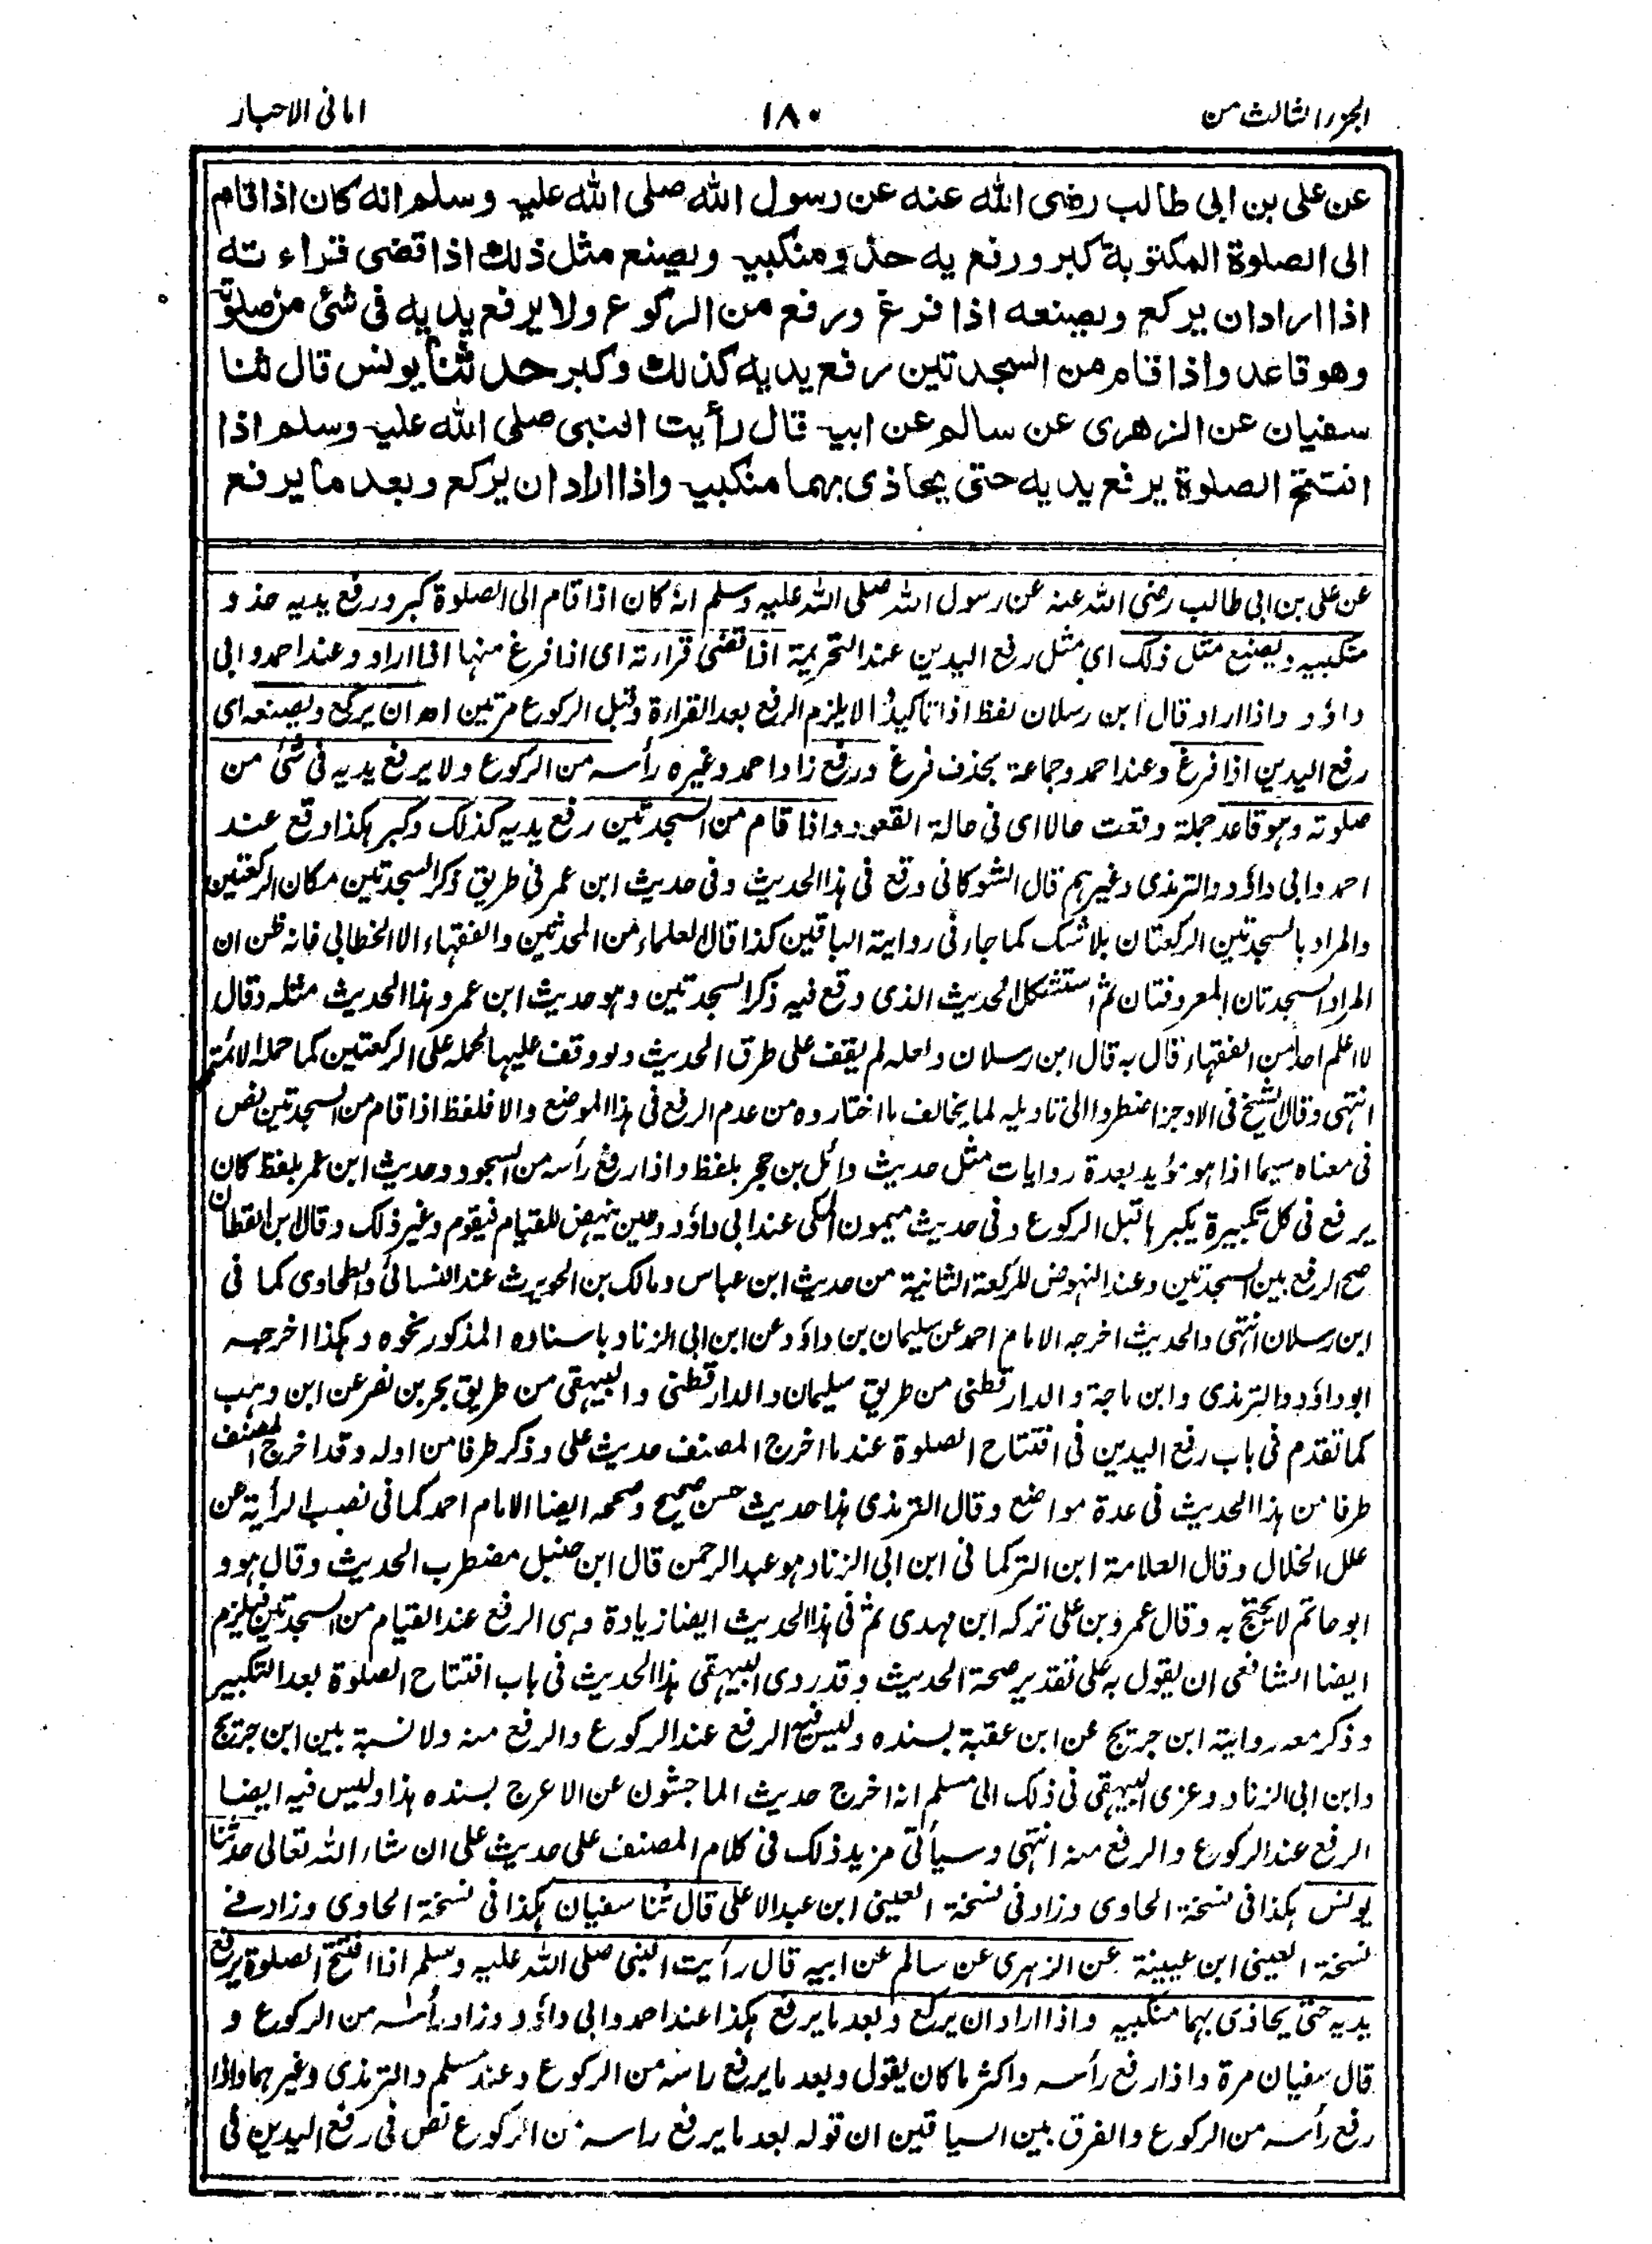 الجزء الثالث من
١٨٠
امانى الاحبار
عن على بن ابى طالب رضى الله عنه عن رسول الله صلى الله عليه وسلم انه كان اذا قام
الى الصلوة المكتوبة كبر ورفع يديه حذو منكبيه ويصنع مثل ذلك اذا قضى قراءته
اذا اراد ان يركع ويصنعه اذا فرغ ورفع من الركوع ولا يرفع يديه فى شئ من صلوته
وهو قاعد واذا قام من السجدتين رفع يديه كذلك وكبر حدثنا يونس قال ثنا
سفيان عن الزهرى عن سالم عن ابيه قال رأيت النبى صلى الله عليه وسلم اذا
افتتح الصلوة يرفع يديه حتى يحاذى بهما منكبيه واذا اراد ان يركع وبعد ما يرفع
عن على بن ابى طالب رضى الله عنه عن رسول الله صلى الله عليه وسلم انه كان اذا قام الى الصلوة كبر ورفع يديه حذو
منكبيه ويصنع مثل ذلك اى مثل رفع اليدين عند التحريمة اذا قضى قراءته اى اذا فرغ منها اذا اراد وعند احمد وابى
داؤد واذا اراد قال ابن رسلان لفظ اذا تاكيد الا يلزم الرفع بعد القراءة وقبل الركوع مرتين اھ ان يركع ويصنعه اى
رفع اليدين اذا فرغ وعند احمد وجماعة بحذف فرغ ورفع زاد احمد وغيره رأسه من الركوع ولا يرفع يديه فى شئ من
صلوته وهو قاعد جملة وقعت حالا اى فى حالة القعود واذا قام من السجدتين رفع يديه كذلك وكبر هكذا وقع عند
احمد وابى داؤد والترمذى وغيرهم قال الشوكانى وقع فى هذا الحديث وفى حديث ابن عمر فى طريق ذكر السجدتين مكان الركعتين
والمراد بالسجدتين الركعتان بلا شك كما جاء فى رواية الباقين كذا قال العلماء من المحدثين والفقهاء الا الخطابى فانه ظن ان
المراد السجدتان المعروفتان ثم استشكل الحديث الذى وقع فيه ذكر السجدتين وهو حديث ابن عمر وهذا الحديث مثله وقال
لا اعلم احدا من الفقهاء قال به قال ابن رسلان ولعله لم يقف على طرق الحديث ولو وقف عليها لحمله على الركعتين كما حمله الائمة
انتهى وقال الشيخ فى الاوجز اضطروا الى تاويله لما يخالف ما اختاروه من عدم الرفع فى هذا الموضع والا فلفظ اذا قام من السجدتين نص
فى معناه سيما اذا هو مؤيد بعدة روايات مثل حديث وائل بن حجر بلفظ واذا رفع رأسه من السجود وحديث ابن عمر بلفظ كان
يرفع فى كل تكبيرة يكبرها قبل الركوع وفى حديث ميمون المكى عند ابى داؤد وحين ينهض للقيام فيقوم وغير ذلك وقال ابن القطان
صح الرفع بين السجدتين وعند النهوض للركعة الثانية من حديث ابن عباس ومالك بن الحويرث عند النسائى والطحاوى كما فى
ابن رسلان انتهى والحديث اخرجه الامام احمد عن سليمان بن داؤد عن ابن ابى الزناد باسناده المذكور نحوه وهكذا اخرجه
ابو داؤد والترمذى وابن ماجة والدارقطنى من طريق سليمان والدارقطنى والبيهقى من طريق بحر بن نصر عن ابن وهب
كما تقدم فى باب رفع اليدين فى افتتاح الصلوة عند ما اخرج المصنف حديث على وذكر طرفا من اوله وقد اخرج المصنف
طرفا من هذا الحديث فى عدة مواضع وقال الترمذى هذا حديث حسن صحيح وصححه ايضا الامام احمد كما فى نصب الرأية عن
علل الخلال وقال العلامة ابن التركمانى ابن ابى الزناد هو عبد الرحمن قال ابن حنبل مضطرب الحديث وقال هو و
ابو حاتم لا يحتج به وقال عمرو بن على تركه ابن مهدى ثم فى هذا الحديث ايضا زيادة وهى الرفع عند القيام من السجدتين فيلزم
ايضا الشافعى ان يقول به على تقدير صحة الحديث وقد روى البيهقى هذا الحديث فى باب افتتاح الصلوة بعد التكبير
وذكر معه رواية ابن جريج عن ابن عقبة بسنده وليس فيه الرفع عند الركوع والرفع منه ولا نسبة بين ابن جريج
وابن ابى الزناد وعزى البيهقى فى ذلك الى مسلم انه اخرج حديث الماجشون عن الاعرج بسنده هذا وليس فيه ايضا
الرفع عند الركوع والرفع منه انتهى وسيأتى مزيد ذلك فى كلام المصنف على حديث على ان شاء الله تعالى حدثنا
يونس هكذا فى نسخة الحاوى وزاد فى نسخة العينى ابن عبد الاعلى قال ثنا سفيان هكذا فى نسخة الحاوى وزاد فى
نسخة العينى ابن عيينة عن الزهرى عن سالم عن ابيه قال رأيت النبى صلى الله عليه وسلم اذا افتتح الصلوة يرفع
يديه حتى يحاذى بهما منكبيه واذا اراد ان يركع وبعد ما يرفع هكذا عند احمد وابى داؤد وزاد رأسه من الركوع و
قال سفيان مرة واذا رفع رأسه واكثر ما كان يقول وبعد ما يرفع راسه من الركوع وعند مسلم والترمذى وغيرهما واذا
رفع رأسه من الركوع والفرق بين السياقين ان قوله بعد ما يرفع راسه من الركوع نص فى رفع اليدين فى